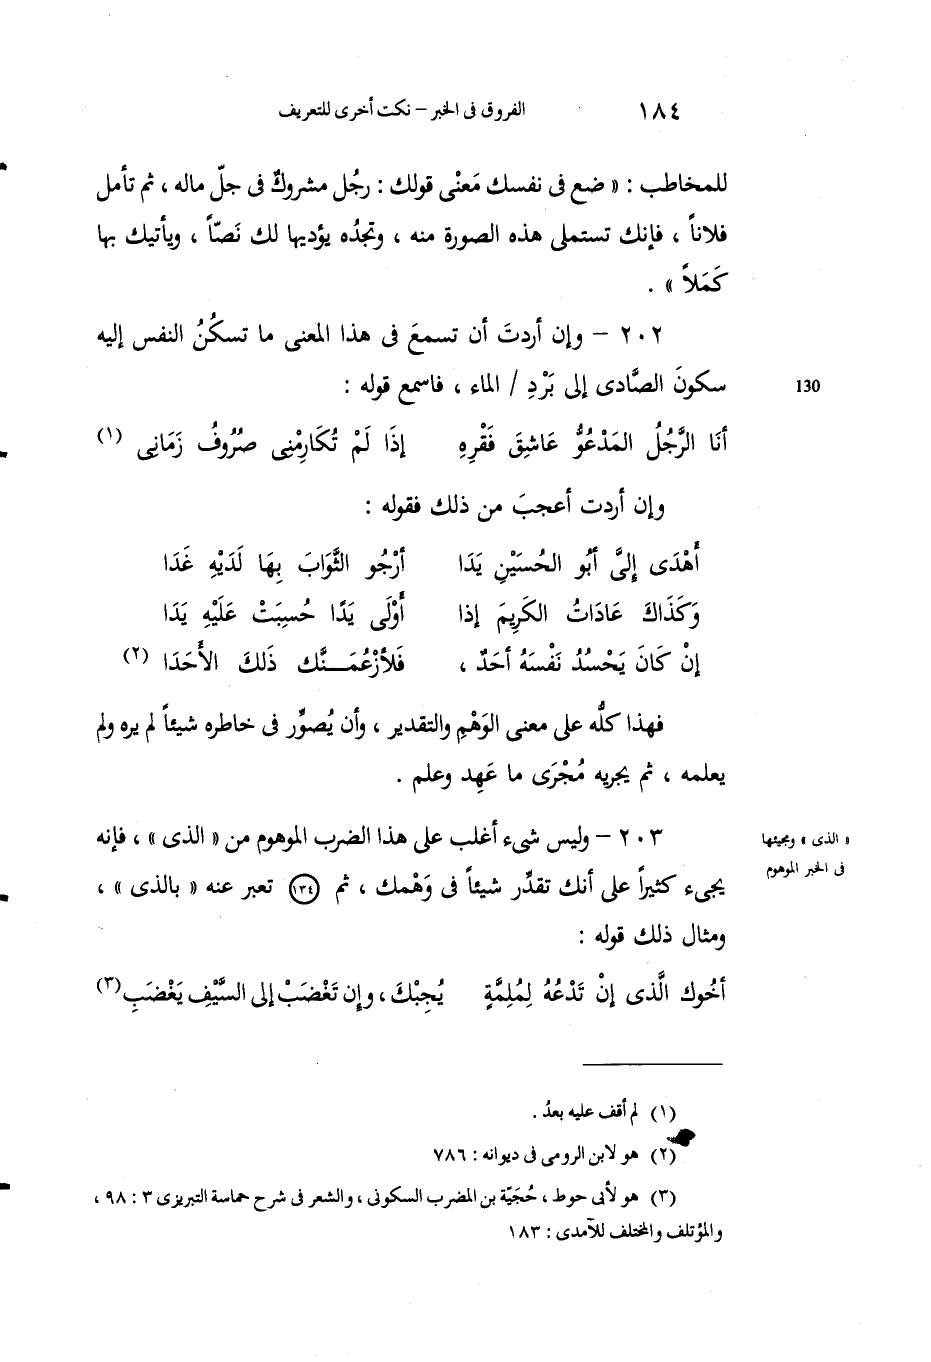 ١٨٤ الفروق فى الخبر – نكت أخرى للتعريف
للمخاطب : « ضع فى نفسك مَعنْى قولك : رجُل مشروكٌ فى جلّ ماله ، ثم تأمل
فلاناً ، فإنك تستملى هذه الصورة منه ، وتجدُه يؤديها لك نَصّاً ، ويأتيك بها
كَمَلاً » .
٢٠٢ – وإن أردتَ أن تسمعَ فى هذا المعنى ما تسكُنُ النفس إليه
سكونَ الصَّادى إلى بَرْدِ / الماء ، فاسمع قوله :
130
أنَا الرَّجُلُ المَدْعُوُّ عَاشِقَ فَقْرِهِ إذَا لَمْ تُكَارِمْنِى صُرُوفُ زَمَانِى (١)
وإن أردت أعجبَ من ذلك فقوله :
أَهْدَى إلىَّ أبُو الحُسَيْنِ يَدَا أرْجُو الثَّوَابَ بِهَا لَدَيْهِ غَدَا
وَكَذَاكَ عَادَاتُ الكَرِيمَ إذا أَوْلَى يَدًا حُسِبَتْ عَلَيْهِ يَدَا
إنْ كَانَ يَحْسُدُ نَفْسَهُ أحَدٌ ، فَلأزْعُمَـــنَّك ذَلكَ الأَحَدَا (٢)
فهذا كلُّه على معنى الوَهْمِ والتقدير ، وأن يُصوِّر فى خاطره شيئاً لم يره ولم
يعلمه ، ثم يجريه مُجْرَى ما عَهِد وعلم .
٢٠٣ – وليس شىء أغلب على هذا الضرب الموهوم من « الذى » ، فإنه
« الذى » ومجيئها
يجىء كثيراً على أنك تقدِّر شيئاً فى وَهْمك ، ثم ١٣٤ تعبر عنه « بالذى » ،
فى الخبر الموهوم
ومثال ذلك قوله :
أخُوك الَّذى إنْ تَدْعُهُ لِمُلِمَّةٍ يُجِبْكَ ، وإِن تَغْضَبْ إلى السَّيْفِ يَغْضَبِ (٣)
(١) لم أقف عليه بعدُ .
(٢) هو لابن الرومى فى ديوانه : ٧٨٦
(٣) هو لأبى حوط ، حُجَيّة بن المضرب السكونى ، والشعر فى شرح حماسة التبريزى ٣ : ٩٨ ،
والمؤتلف والمختلف للآمدى : ١٨٣